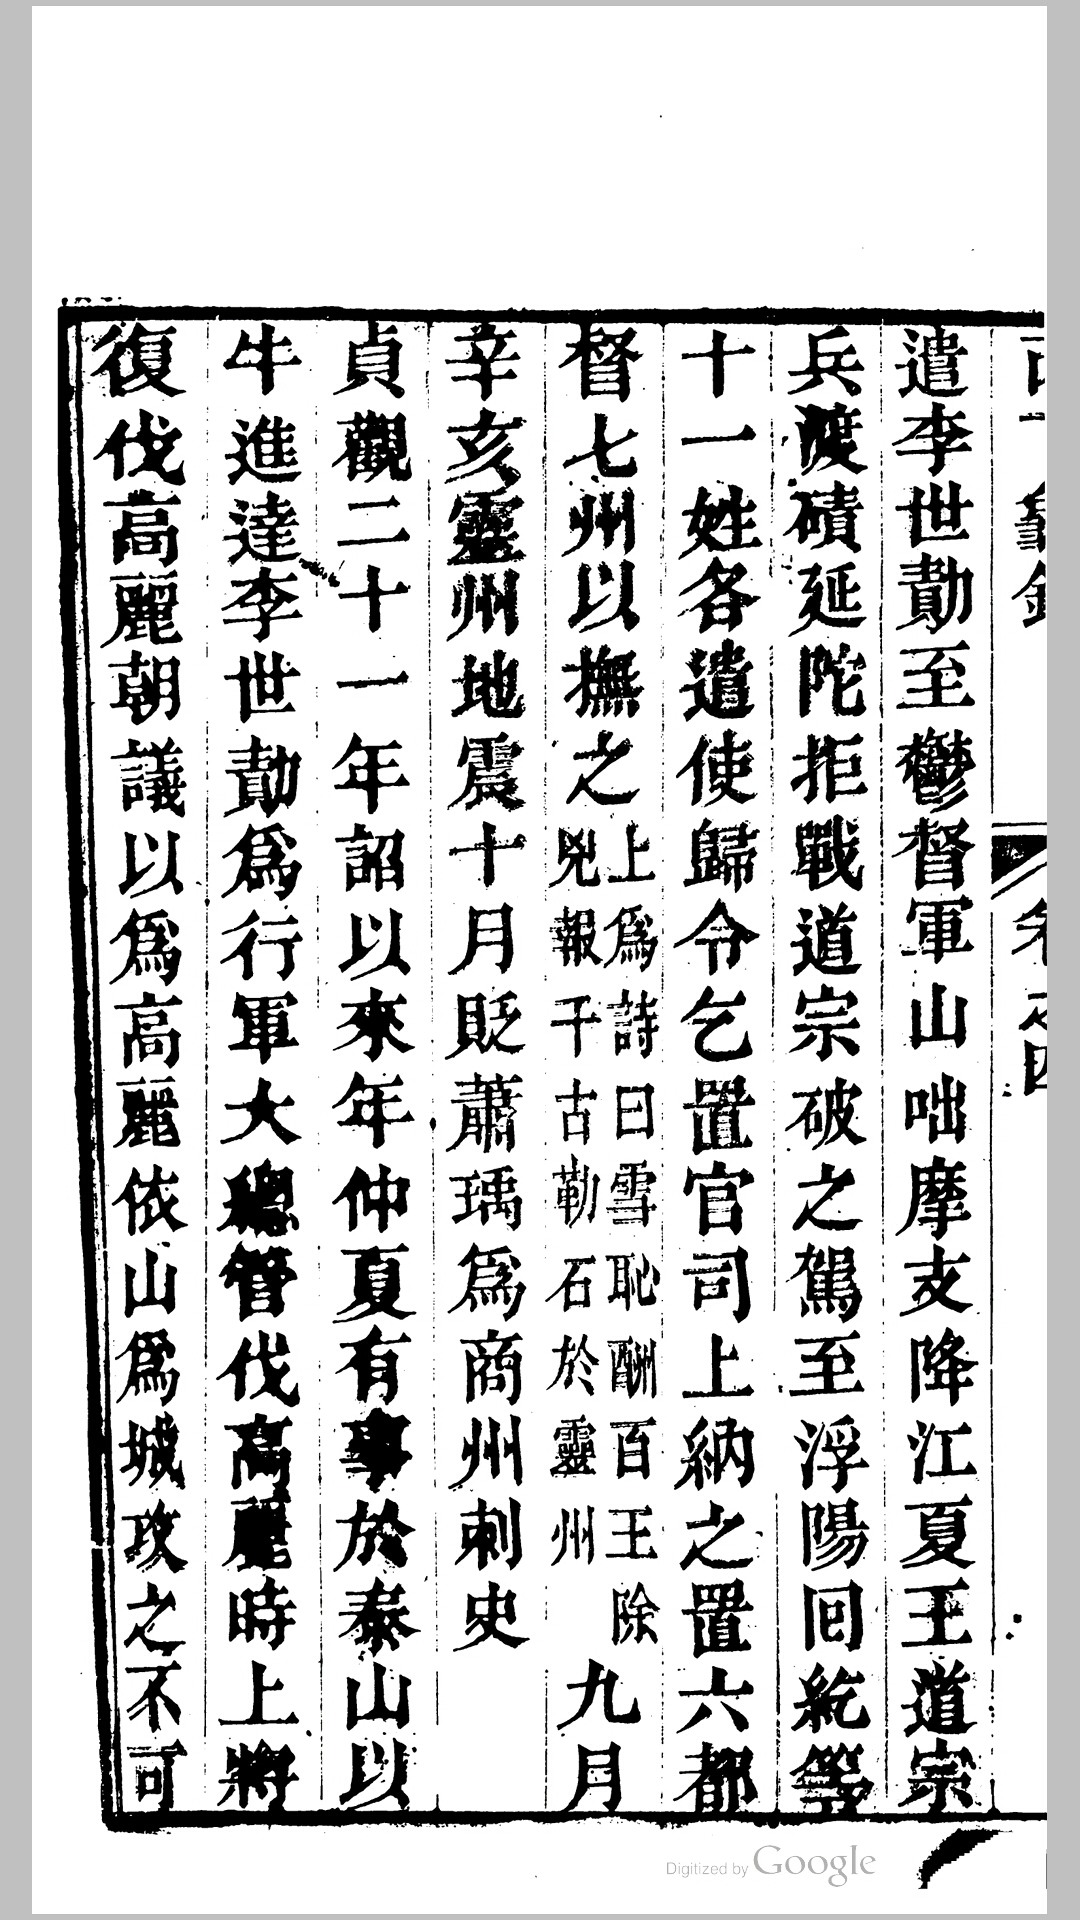 遣李世勣至鬱督軍山咄摩支降江夏王道宗
兵渡磧延陀拒戰道宗破之駕至浮陽回紇等
十一姓各遣使歸令乞置官司上納之置六都
督七州以撫之上爲詩曰雪恥酬百王除兇報千古勒石於靈州九月
辛亥靈州地震十月貶蕭瑀爲商州刺史
貞觀二十一年詔以來年仲夏有事於泰山以
牛進達李世勣爲行軍大總管伐高麗時上將
復伐高麗朝議以爲高麗依山爲城攻之不可
Digitized by Google